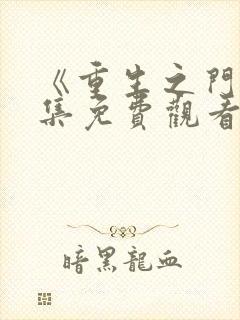 《重生之門
集免費觀看
暗黑龍血